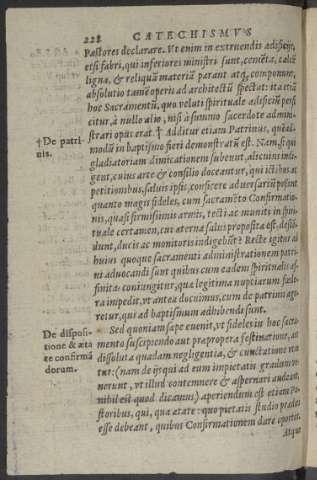 228 CATECHISMVS
Pastores declarare. Vt enim in extruendis ædificijs,
etsi fabri, qui inferiores ministri sunt, cemēta, calcē
ligna, & reliquā materiā parant atq; componunt,
absolutio tamē operis ad architectū spectat: ita etiā
hoc Sacramentū, quo veluti spirituale ædificiū perfi
citur, à nullo alio, nisi à summo sacerdote admini-
strari opus erat. † Additur etiam Patrinus, quēad-
† De patri-
nis.
modū in baptismo fieri demonstratū est. Nam, si qui
gladiatoriam dimicationem subeunt, alicuius indi-
gent, cuius arte & consilio doceantur, qui ictibus ac
petitionibus, saluis ipsis, conficere aduersariū possint
quanto magis fideles, cum sacramēto Confirmatio-
nis, quasi firmissimis armis, tecti ac muniti in spiri-
tuale certamen, cui æterna salus proposita est, descē-
dunt, ducis ac monitoris indigebūt? Recte igitur ad
huius quoque sacramenti administrationem patri-
ni aduocandi sunt quibus cum eadem spiritualis af-
finitas coniungitur, qua legitima nuptiarum fœde-
ra impedit, vt antea docuimus, cum de patrinis age-
retur, qui ad baptismum adhibendi sunt.
De disposi-
tione & æta
te confirmā
dorum.
Sed quoniam sæpe euenit, vt fideles in hoc sacra-
mento suscipiendo aut præpropera festinatione, aut
dissoluta quadam negligentia, & cunctatione vtā
tur: (nam de ijs qui ad eum impietatis gradum ve-
nerunt, vt illud contemnere & aspernari audeant,
nihil est quod dicamus) aperiendum est etiam Pa-
storibus, qui, qua ætate: quo pietatis studio præditos
esse debeant, quibus Confirmationem dare oportet.
Atque